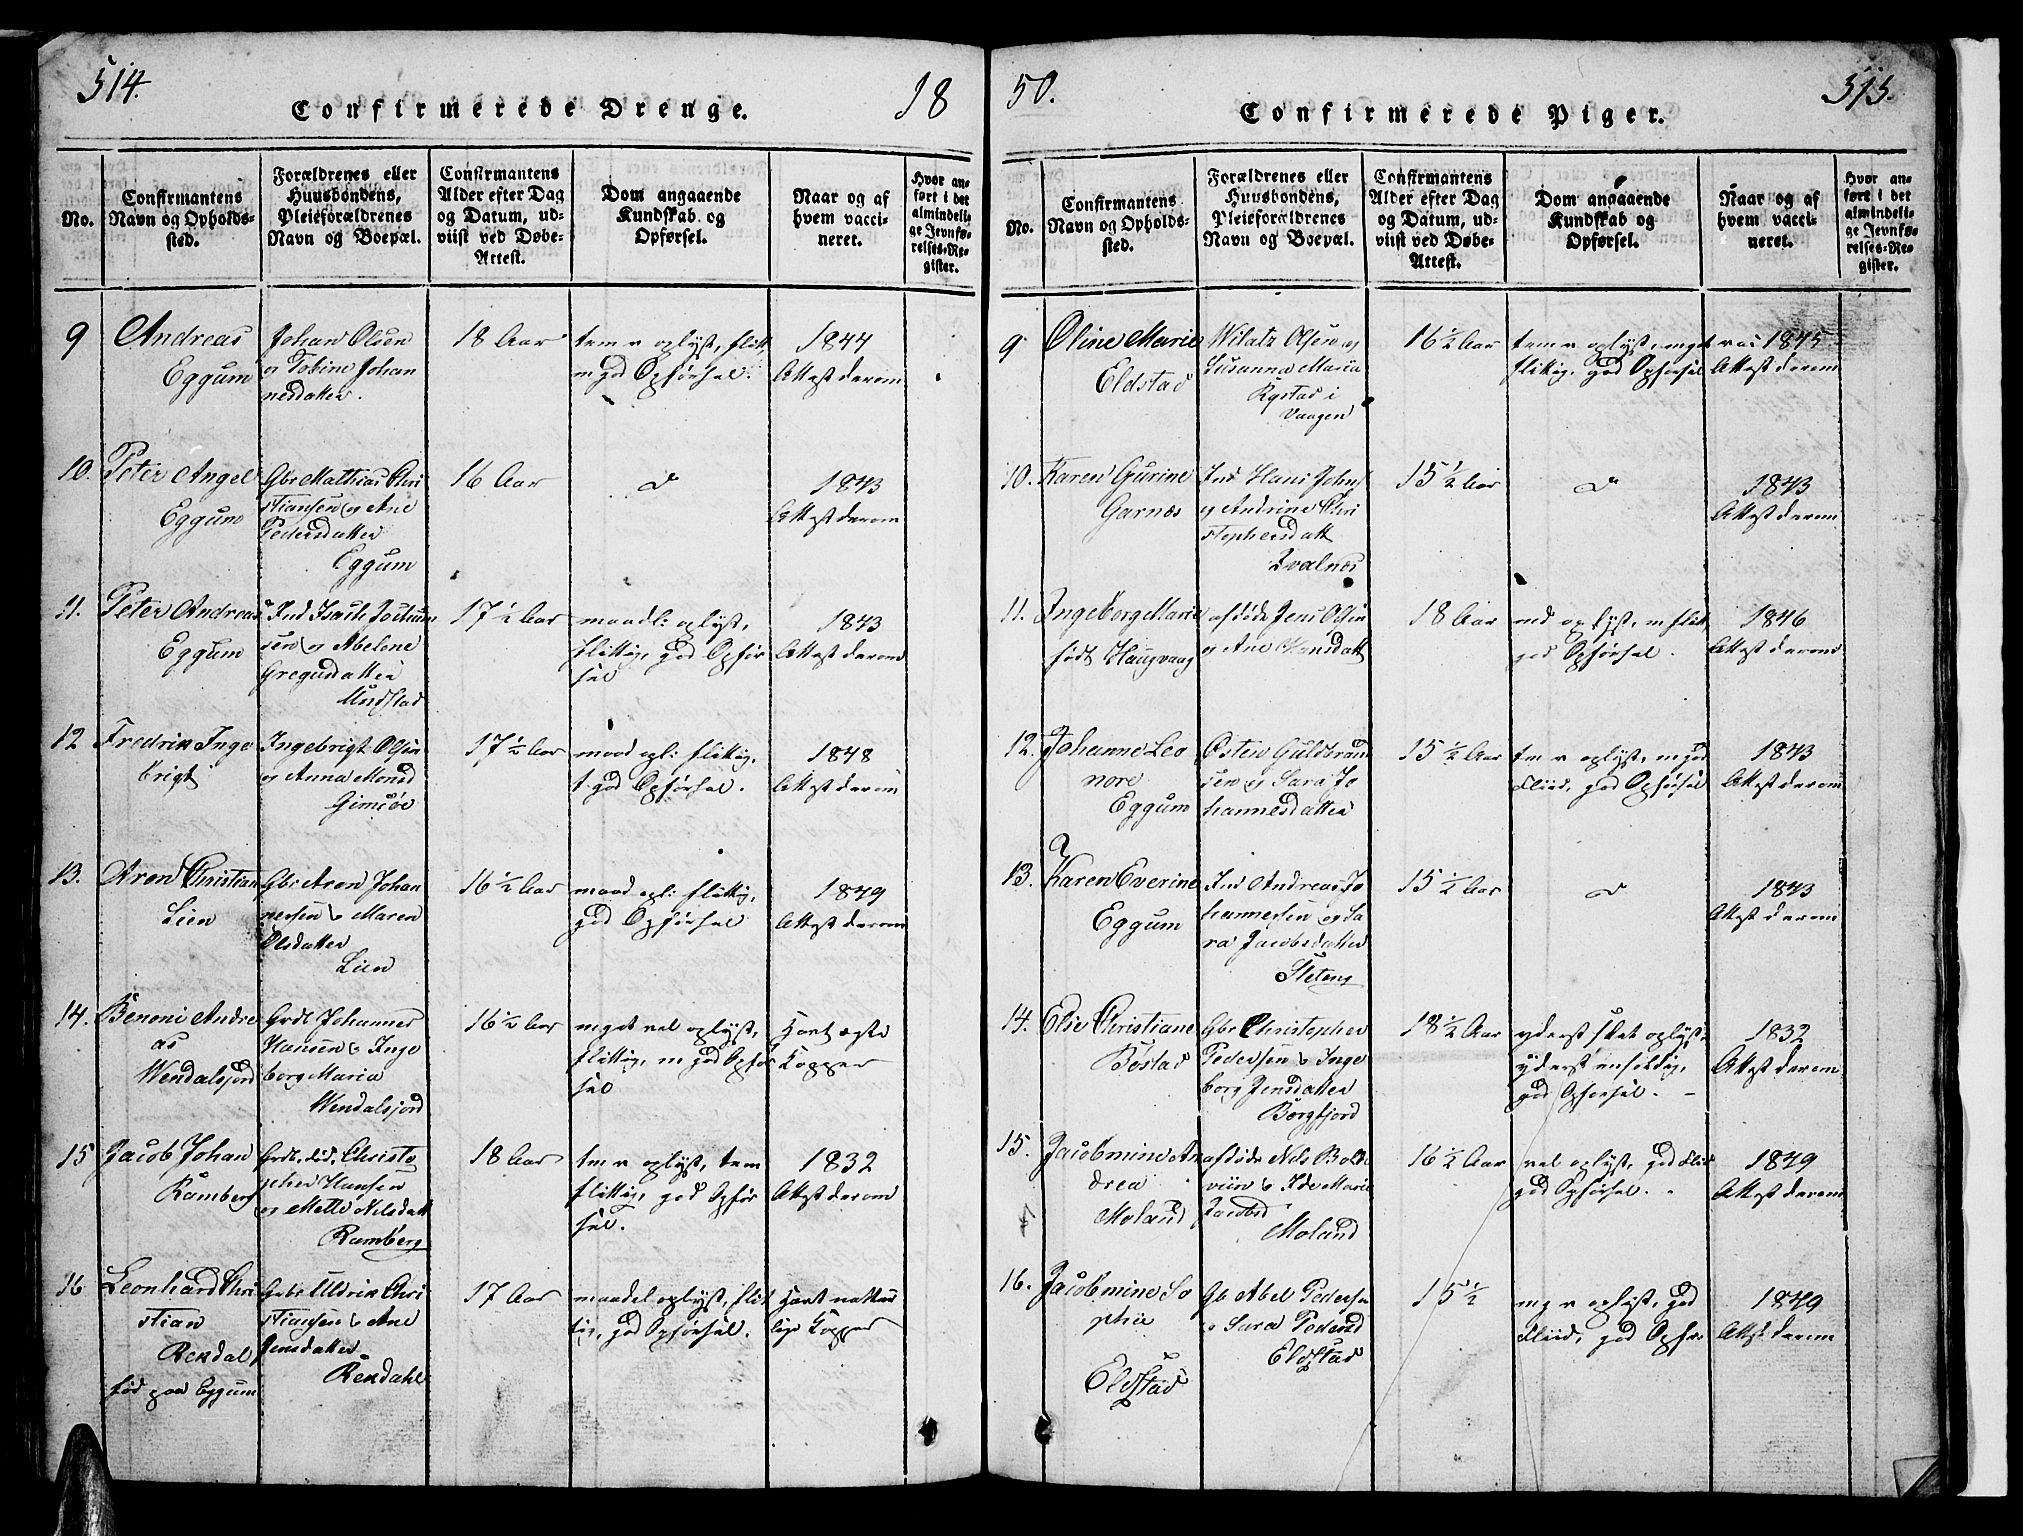 514.
18
Confirmerede Drenge.
No.
Confirmantens
Navn og Opholds-
sted.
Forældrenes eller
Huusbondens,
Pleieforældrenes
Navn og Boepæl.
Confirmantens
Alder efter Dag
og Datum, ud-
viist ved Døbe-
Attest.
Dom angaaende
Kundskab og
Opførsel.
Naar og af
hvem vacci-
neret.
Hvor an-
ført i det
almindeli-
ge Jevnfø-
relses-Re-
gister.
9
Andreas
Eggum
Johan Olsen
og Tobine Johan
nesdatter.
18 Aar
god Opførsel.
1844
Attest derom
10.
Peter Angel
Eggum
Gbr Mathias Chri
stiansen og Ane
Pedersdatter
Eggum
16 Aar
d
1843
Attest derom
11.
Peter Andreas
Eggum
Ind Isach Jochum
sen og Abelone
Gregusdatter
17 ½ Aar
maadl: oplyst,
flittig, god Opfør
sel
1843
Attest derom
12
Fredrik Inge
brigt
Ingebrigt Olsen
og Anna Monsd
Gimsøe
17 ½ Aar
maad opl: flittig,
god Opførsel.
1848
Attest derom
13.
Aron Christian
Lien
Gbr Aron Johan
nessen & Maren
Olsdatter
Lien
16 ½ Aar
maad opl: flittig,
god Opførsel
1849
Attest derom
14.
Benoni Andre
as
Wendalsjord
Grdl Johannes
Hansen & Inge
borg Maria
Wendalsjord
16 ½ Aar
meget vel oplyst,
flittig, m god Opfør
sel
Havt ægte
Kopper
15
Jacob Johan
Ramberg
Grdl. død. Christo
pher Hansen
og Mette Nilsdatt
Ramberg
18 Aar
oplyst, tem
flittig, god Opfør
sel.
1832
Attest derom
16
Leonhard Chri
stian
Rekdal
fød paa Eggum
Gbr Uldrik Chri
stiansen & Ane
Jensdatter
Rekdahl
17 Aar
maadel oplyst, flit
tig, god Opførsel.
Havt natur
lige Kopper
50.
515.
Confirmerede Piger.
No.
Confirmantens
Navn og Opholds-
sted.
Forældrenes eller
Huusbondens,
Pleieforældrenes
Navn og Boepæl.
Confirmantens
Alder efter Dag
og Datum, ud-
viist ved Døbe-
Attest.
Dom angaaende
Kundskab og
Opførsel.
Naar og af
hvem vacci-
neret.
Hvor an-
ført i det
almindeli-
ge Jevnfø-
relses-Re-
gister.
9
Oline Marie
Eldstad
Wilatz Olsen og
Susanna Maria
Rystad i
Vaagen
16 ½ Aar
flittig, god Opførsel
1845
Attest derom
10.
Karen Gurine
Garnæs
Ind Hans Johns
og Andrine Chri
stophersdatt
Qvalnæs
15 ½ Aar
d
1843
Attest derom
11.
Ingeborg Maria
født Haugvaag
afdøde Jens Olsen
og Ane Hansdatt
18 Aar
god Opførsel.
1846
Attest derom
12.
Johanne Leo
nore
Eggum
Østen Guldbrand
sen og Sara Jo
hannesdatter
15 ½ Aar
Fliid, god Opførsel
1843
Attest derom
13.
Karen Everine
Eggum
Ind Andreas Jo
hannessen og Sa
ra Jacobsdatter
Steteng
15 ½ Aar
d
1843
Attest derom
14.
Elie Christiane
Bøstad
Gbr Christopher
Pedersen & Inge
borg Jensdatter
Borgfjord
18 ½ Aar
yderst slet oplyst,
yderst enfoldig,
god Opførsel.
1832
Attest derom
15.
Jacobmine An
drea
Moland
afdøde Nils Bolde
viin & Ide Marie
Jacobsd
Moland
16 ½ Aar
vel oplyst, god Fliid
god Opførsel.
1849
Attest derom
16.
Jacobmine So
phie
Eldstad
Gb Abel Peders
og Sara Pedersd
Eldstad
15 ½
oplyst, god
Fliid, god Opfør
1849
Attest derom